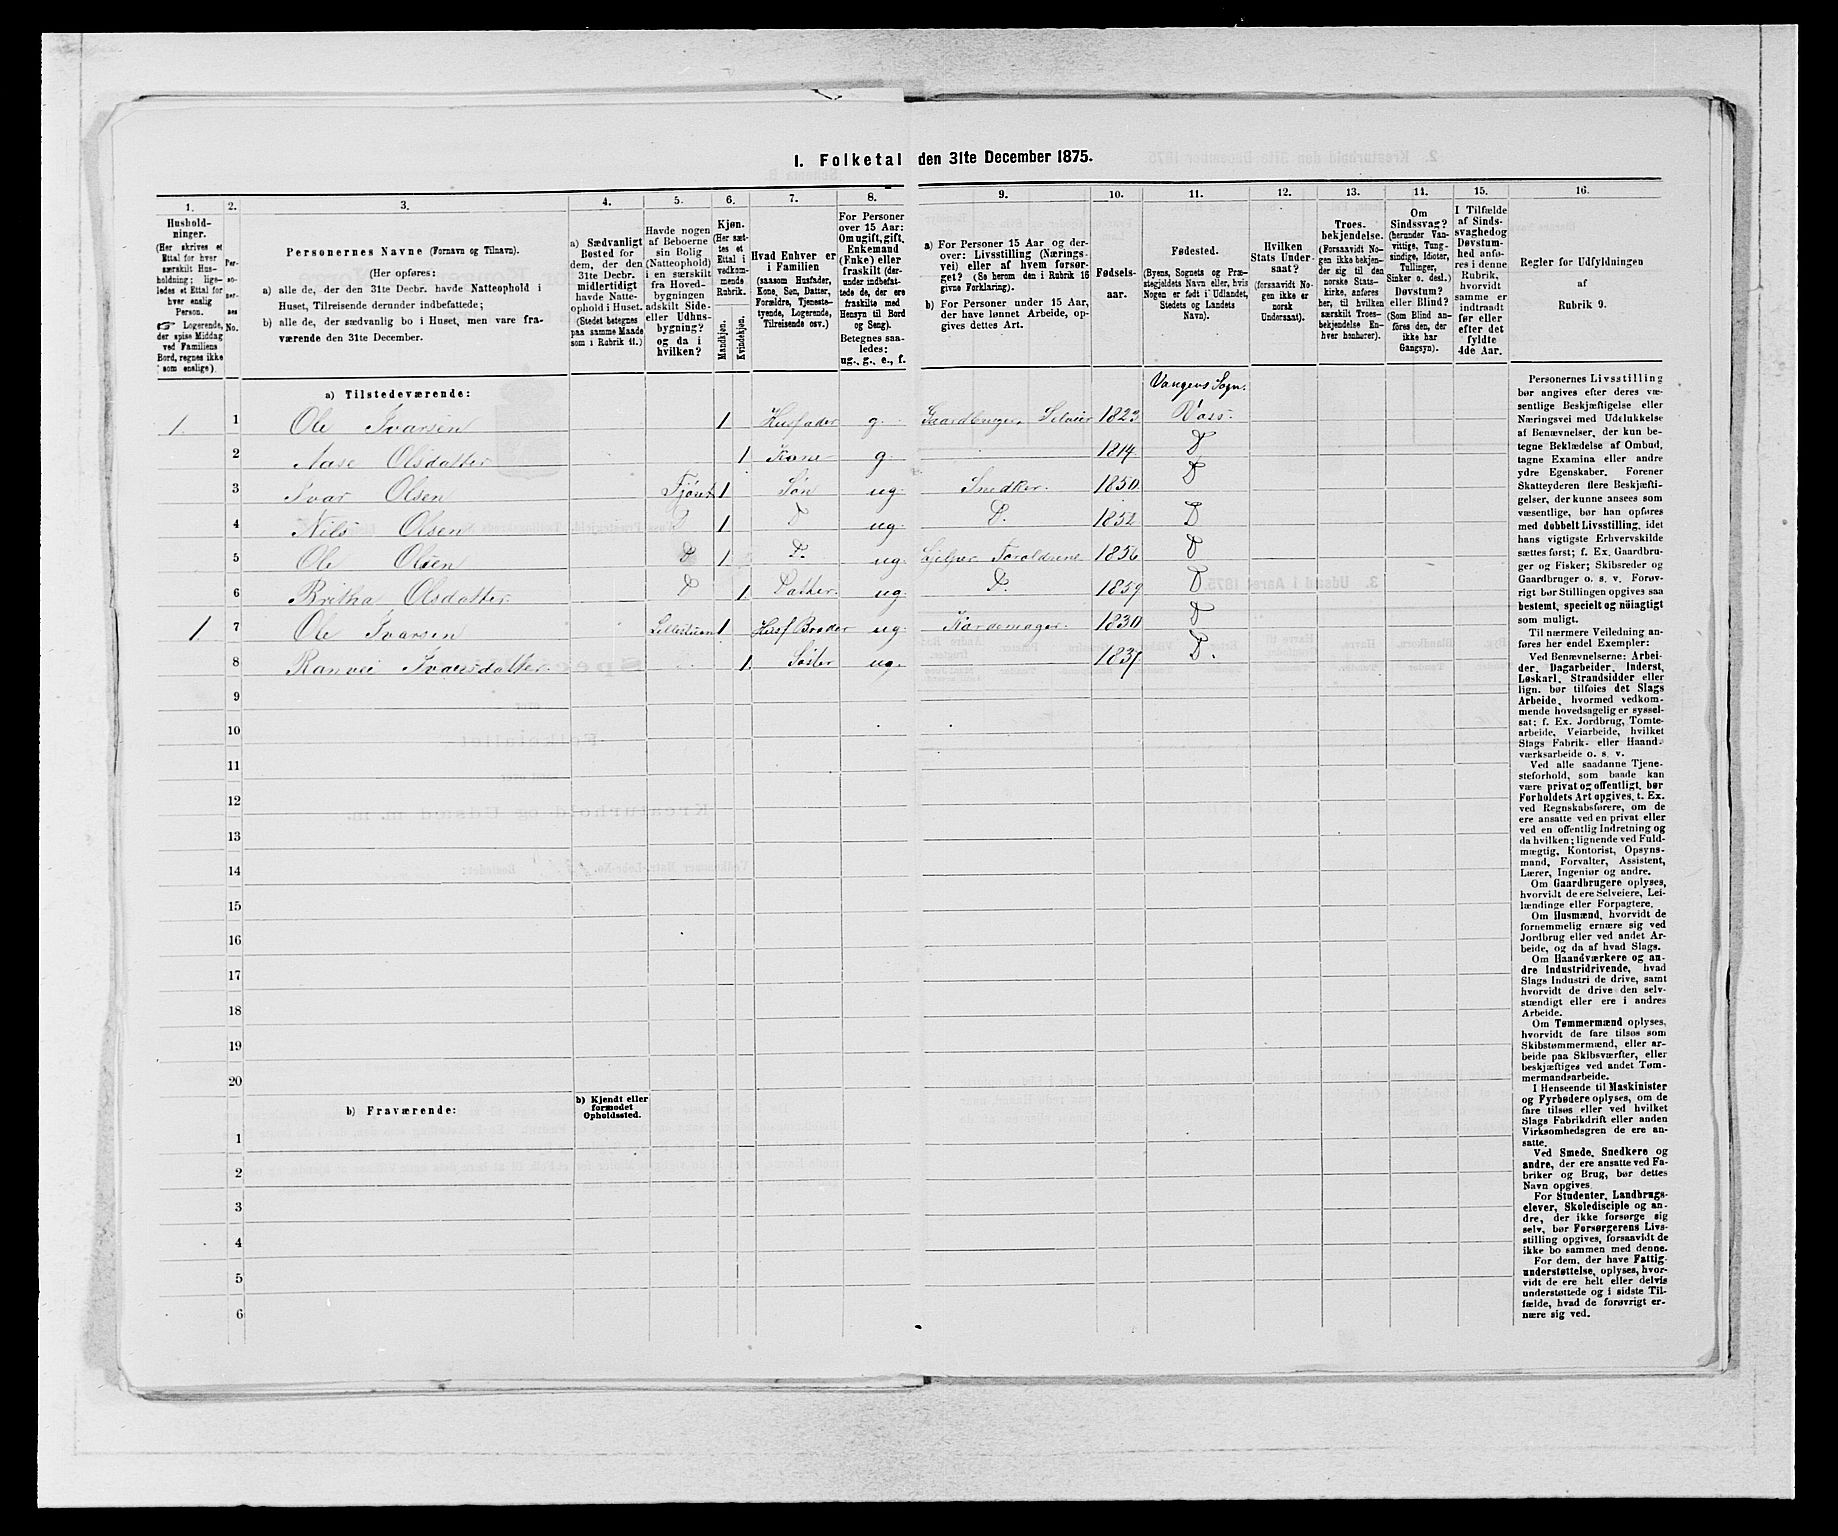 1. Folketal den 31te December 1875.
1. 2. 3. 4. 5. 6. 7. 8. 9. 10. 11. 12. 13. 14. 15. 16.
Hushold-
ninger.
(Her skrives et
Ettal for hver
særskilt Hus-
holdning; lige-
ledes et Ettal for
hver enslig
Person.
☞ Logerende,
der spise Middag
ved Familiens
Bord, regnes ikke
som enslige).
Per-
so-
ner-
nes
No.
Personernes Navne (Fornavn og Tilnavn).
(Her opføres:
a) alle de, der den 31te Decbr. havde Natteophold i
Huset, Tilreisende derunder indbefattede;
b) alle de, der sædvanlig bo i Huset, men vare fra-
værende den 31te December.
a) Sædvanligt
Bosted for
dem, der den
31te Decbr.
midlertidigt
havde Natte-
ophold i Huset.
(Stedet betegnes
paa samme Maade
som i Rubrik 11.)
Havde nogen
af Beboerne
sin Bolig
(Natteophold)
i en særskilt
fra Hoved-
bygningen
adskilt Side-
eller Udhus-
bygning?
og da i
hvilken?
Kjøn.
(Her sæt-
tes et
Ettal i
vedkom-
mende
Rubrik.
Mandkjøn.
Kvindekjøn.
Hvad Enhver er
i Familien
(saasom Husfader,
Kone, Søn, Datter,
Forældre, Tjeneste-
tyende, Logerende,
Tilreisende osv.)
For Personer
over 15 Aar:
Om ugift, gift,
Enkemand
(Enke) eller
fraskilt (der-
under indbefat-
tede de, der ere
fraskilte med
Hensyn til Bord
og Seng).
Betegnes saa-
ledes:
ug., g., e., f.
a) For Personer 15 Aar og der-
over: Livsstilling (Nærings-
vei) eller af hvem forsør-
get? (Se herom den i Rubrik 16
givne Forklaring).
b) For Personer under 15 Aar,
der have lønnet Arbeide, op-
gives dettes Art.
Fødsels-
aar.
Fødested.
(Byens, Sognets og Præ-
stegjeldets Navn eller, hvis
Nogen er født i Udlandet,
Stedets og Landets
Navn).
Hvilken
Stats Under-
saat?
(forsaavidt No-
gen ikke er
norsk
Undersaat).
Troes-
bekjendelse.
(Forsaavidt No-
gen ikke bekjen-
der sig til den
norske Stats-
kirke, anføres
her, til hvilken
særskilt Troes-
bekjendelse En-
hver henhører).
Om
Sindssvag?
(herunder Van-
vittige, Tung-
sindige, Idioter,
Tullinger,
Sinker o. desl.)
Døvstum?
eller Blind?
(Som Blind an-
føres den, der
ikke har
Gangsyn).
I Tilfælde
af Sinds-
svaghed og
Døvstum-
hed anfø-
res i denne
Rubrik,
hvorvidt
samme er
indtraadt
før eller
efter det
fyldte
4de Aar.
Regler for Udfyldningen
af
Rubrik 9.
a) Tilstedeværende:
Vangens Sogn.
1. 1 Ole Ivarsen 1 Husfader g. Gaardbruger, Selveier 1823 Voss.
2 Aase Olsdatter 1 Kone g 1814 D
3 Ivar Olsen Fjøset 1 Søn ug. Snedker. 1850. D
4 Nils Olsen D 1 D ug. D. 1852 D
5 Ole Olsen D 1 D. ug. hjelper Foraldrene 1856 D
6 Britha Olsdatter. D 1. Datter. ug. D. 1859 D
1 7 Ole Ivarsen Lillestuen 1 Husf Broder ug. Kardemager. 1830 D
8 Ranvei Ivarsdatter. 1. Søster ug. 1837 D.
9
10
11
12
13
14
15
16
17
18
19
20
b) Fraværende:
b) Kjendt eller
formodet
Opholdssted.
1
2
3
4
5
6
Personernes Livsstilling
bør angives efter deres væ-
sentlige Beskjæftigelse eller
Næringsvei med Udelukkelse
af Benævnelser, der kun be-
tegne Beklædelse af Ombud,
tagne Examina eller andre
ydre Egenskaber. Forener
Skatteyderen flere Beskjæfti-
gelser, der kunne ansees som
væsentlige, bør han opføres
med dobbelt Livsstilling, idet
hans vigtigste Erhvervskilde
sættes først; f. Ex. Gaardbru-
ger og Fisker; Skibsreder og
Gaardbruger o. s. v. Forøv-
rigt bør Stillingen opgives saa
bestemt, specielt og nøiagtigt
som muligt.
Til nærmere Veiledning an-
føres her endel Exempler:
Ved Benævnelserne: Arbei-
der, Dagarbeider, Inderst,
Løskarl, Strandsidder eller
lign. bør tilføies det Slags
Arbeide, hvormed vedkom-
mende hovedsagelig er syssel-
sat; f. Ex. Jordbrug, Tomte-
arbeide, Veiarbeide, hvilket
Slags Fabrik- eller Haand-
værksarbeide o. s. v.
Ved alle saadanne Tjene-
steforhold, som baade kan
være privat og offentligt, bør
Forholdets Art opgives, t. Ex.
ved Regnskabsførere, om de
ere ansatte ved en privat eller
ved en offentlig Indretning og
da hvilken; lignende ved Fuld-
mægtig, Kontorist, Opsyns-
mand, Forvalter, Assistent,
Lærer, Ingeniør og andre.
Om Gaardbrugere oplyses,
hvorvidt de ere Selveiere, Lei-
lændinge eller Forpagtere.
Om Husmænd, hvorvidt de
fornemmelig ernære sig ved
Jordbrug eller ved andet Ar-
beide, og da af hvad Slags.
Om Haandværkere og an-
dre Industridrivende, hvad
Slags Industri de drive, samt
hvorvidt de drive den selv-
stændigt eller ere i andres
Arbeide.
Om Tømmermænd oplyses,
hvorvidt de fare tilsøs som
Skibstømmermænd, eller ar-
beide paa Skibsværfter, eller
beskjæftiges ved andet Tøm-
mermandsarbeide.
I Henseende til Maskinister
og Fyrbødere oplyses, om de
fare tilsøs eller ved hvilket
Slags Fabrikdrift eller anden
Virksomhedsgren de ere an-
satte.
Ved Smede, Snedkere og
andre, der ere ansatte ved Fa-
briker og Brug, bør dettes
Navn opgives.
For Studenter, Landbrugs-
elever, Skoledisciple og an-
dre, der ikke forsørge sig
selv, bør Forsørgerens Livs-
stilling opgives, forsaavidt de
ikke bo sammen med denne.
For dem, der have Fattig-
understøttelse, oplyses, hvor-
vidt de ere helt eller delvis
understøttede og i sidste Til-
fælde, hvad de forøvrigt er-
nære sig ved.